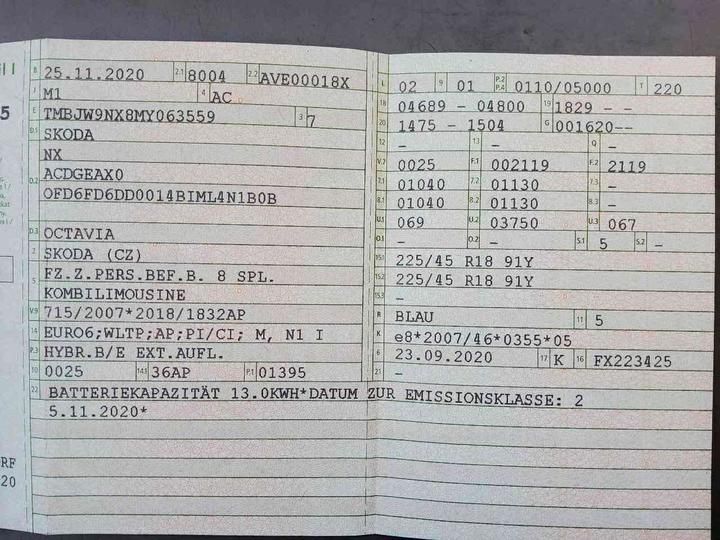 il I
B 25.11.2020 2.1 8004 2.2 AVE00018X
J M1 4 AC
E TMBJW9NX8MY063559 3 7
D.1 SKODA
NX
D.2 ACDGEAX0
OFD6FD6DD0014BIML4N1B0B
D.3 OCTAVIA
2 SKODA (CZ)
5 FZ.Z.PERS.BEF.B. 8 SPL.
KOMBILIMOUSINE
V.9 715/2007*2018/1832AP
14 EURO6;WLTP;AP;PI/CI; M, N1 I
P.3 HYBR.B/E EXT.AUFL.
10 0025 14.1 36AP P.1 01395
22 BATTERIEKAPAZITÄT 13.0KWH*DATUM ZUR EMISSIONSKLASSE: 2
5.11.2020*
L 02 9 01 P.2 P.4 0110/05000 T 220
18 04689 - 04800 19 1829 - -
20 1475 - 1504 G 001620--
12 - 13 - Q -
V.7 0025 F.1 002119 F.2 2119
7.1 01040 7.2 01130 7.3 -
8.1 01040 8.2 01130 8.3 -
U.1 069 U.2 03750 U.3 067
O.1 - O.2 - S.1 5 S.2 -
15.1 225/45 R18 91Y
15.2 225/45 R18 91Y
15.3 -
R BLAU 11 5
K e8*2007/46*0355*05
6 23.09.2020 17 K 16 FX223425
21 -
5
RF
20